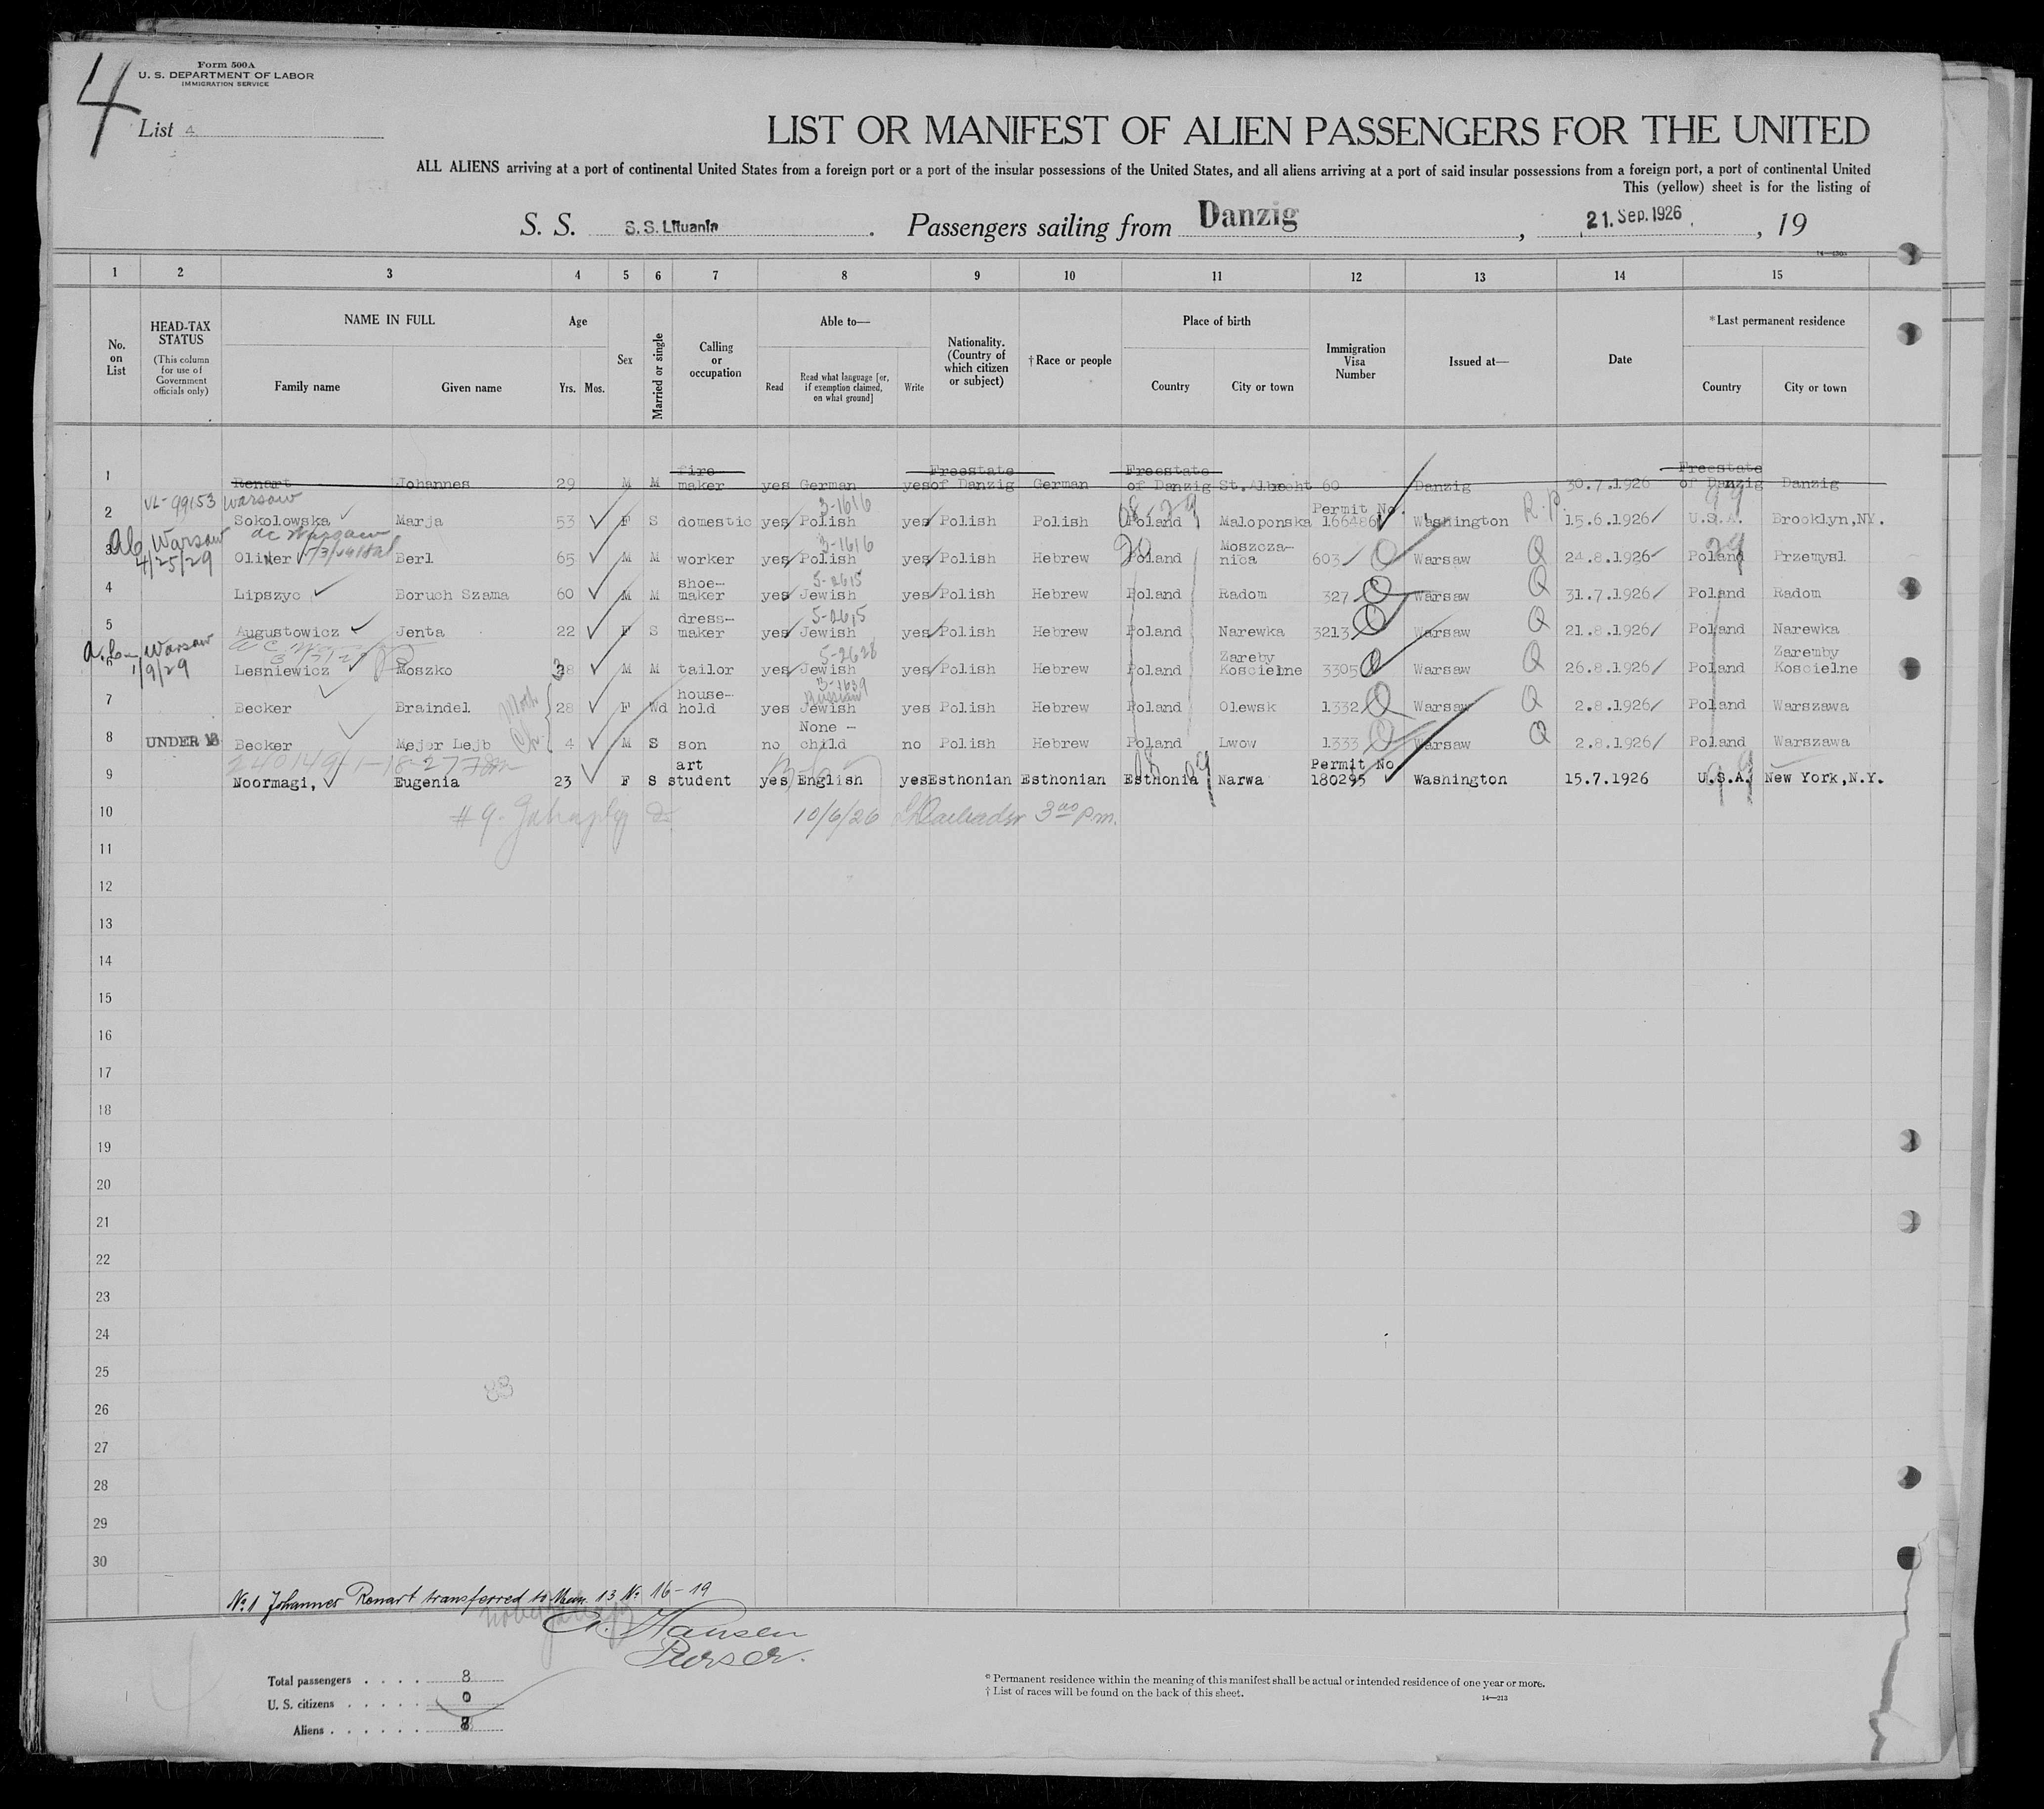 4
Form 500A
U. S. DEPARTMENT OF LABOR
IMMIGRATION SERVICE
List 4
LIST OR MANIFEST OF ALIEN PASSENGERS FOR THE UNITED
ALL ALIENS arriving at a port of continental United States from a foreign port or a port of the insular possessions of the United States, and all aliens arriving at a port of said insular possessions from a foreign port, a port of continental United
This (yellow) sheet is for the listing of
S. S. S. S. Lituania . Passengers sailing from Danzig , 21. Sep. 1926 , 19
1 2 3 4 5 6 7 8 9 10 11 12 13 14 15
No. on List
HEAD-TAX STATUS (This column for use of Government officials only)
NAME IN FULL Family name Given name
Age Yrs. Mos.
Sex
Married or single
Calling or occupation
Able to— Read Read what language [or, if exemption claimed, on what ground] Write
Nationality. (Country of which citizen or subject)
†Race or people
Place of birth Country City or town
Immigration Visa Number
Issued at—
Date
*Last permanent residence Country City or town
1 Renart Johannes 29 M M fire maker yes German yes Freestate of Danzig German Freestate of Danzig St. Albrecht 60 Danzig 30.7.1926 Freestate of Danzig Danzig
VL-99153 Warsaw 3-1616
2 Sokolowska Marja 53 F S domestic yes Polish yes Polish Polish Poland Maloponska Permit No. 166486 Washington R.P. 15.6.1926 U.S.A. Brooklyn,NY.
Warsaw 4/25/29 3-1616
3 Oliwer Berl 65 M M worker yes Polish yes Polish Hebrew Poland Moszcza-nica 603 Warsaw Q 24.8.1926 Poland Przemysl
5-2615
4 Lipszyc Boruch Szama 60 M M shoe-maker yes Jewish yes Polish Hebrew Poland Radom 327 Warsaw Q 31.7.1926 Poland Radom
5-2615
5 Augustowicz Jenta 22 F S dress-maker yes Jewish yes Polish Hebrew Poland Narewka 3213 Warsaw Q 21.8.1926 Poland Narewka
Warsaw 1/9/29 5-2628
6 Lesniewicz Moszko 38 M M tailor yes Jewish yes Polish Hebrew Poland Zareby Koscielne 3305 Warsaw Q 26.8.1926 Poland Zaremby Koscielne
3-1639 Russian
7 Becker Braindel 28 F Wd house-hold yes Jewish yes Polish Hebrew Poland Olewsk 1332 Warsaw Q 2.8.1926 Poland Warszawa
8 UNDER 16 Becker Mejer Lejb 4 M S son no None - child no Polish Hebrew Poland Lwow 1333 Warsaw Q 2.8.1926 Poland Warszawa
9 Noormagi, Eugenia 23 F S art student yes English yes Esthonian Esthonian Esthonia Narwa Permit No 180295 Washington 15.7.1926 U.S.A. New York,N.Y.
10 # 9. 10/6/26 3 00 p.m.
11
12
13
14
15
16
17
18
19
20
21
22
23
24
25
88
26
27
28
29
30
No 1 Johannes Renart transferred to Man. 13 No 16-19
Hansen
Purser.
Total passengers . . . . 8
U. S. citizens . . . . . 0
Aliens . . . . . . 8
* Permanent residence within the meaning of this manifest shall be actual or intended residence of one year or more.
† List of races will be found on the back of this sheet. 14—213